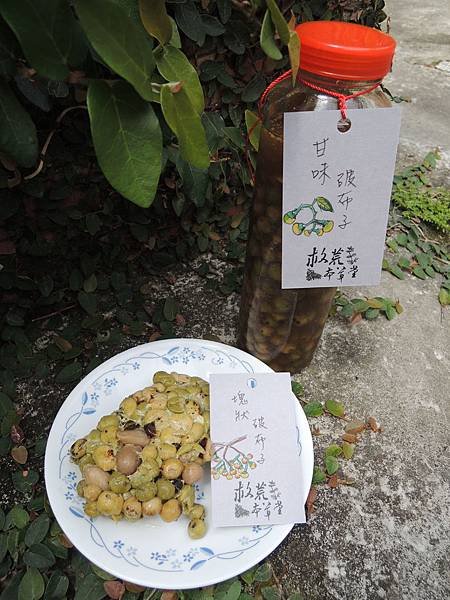 甘味
破布子
救荒
本草堂
塊狀
破布子
救荒
本草堂